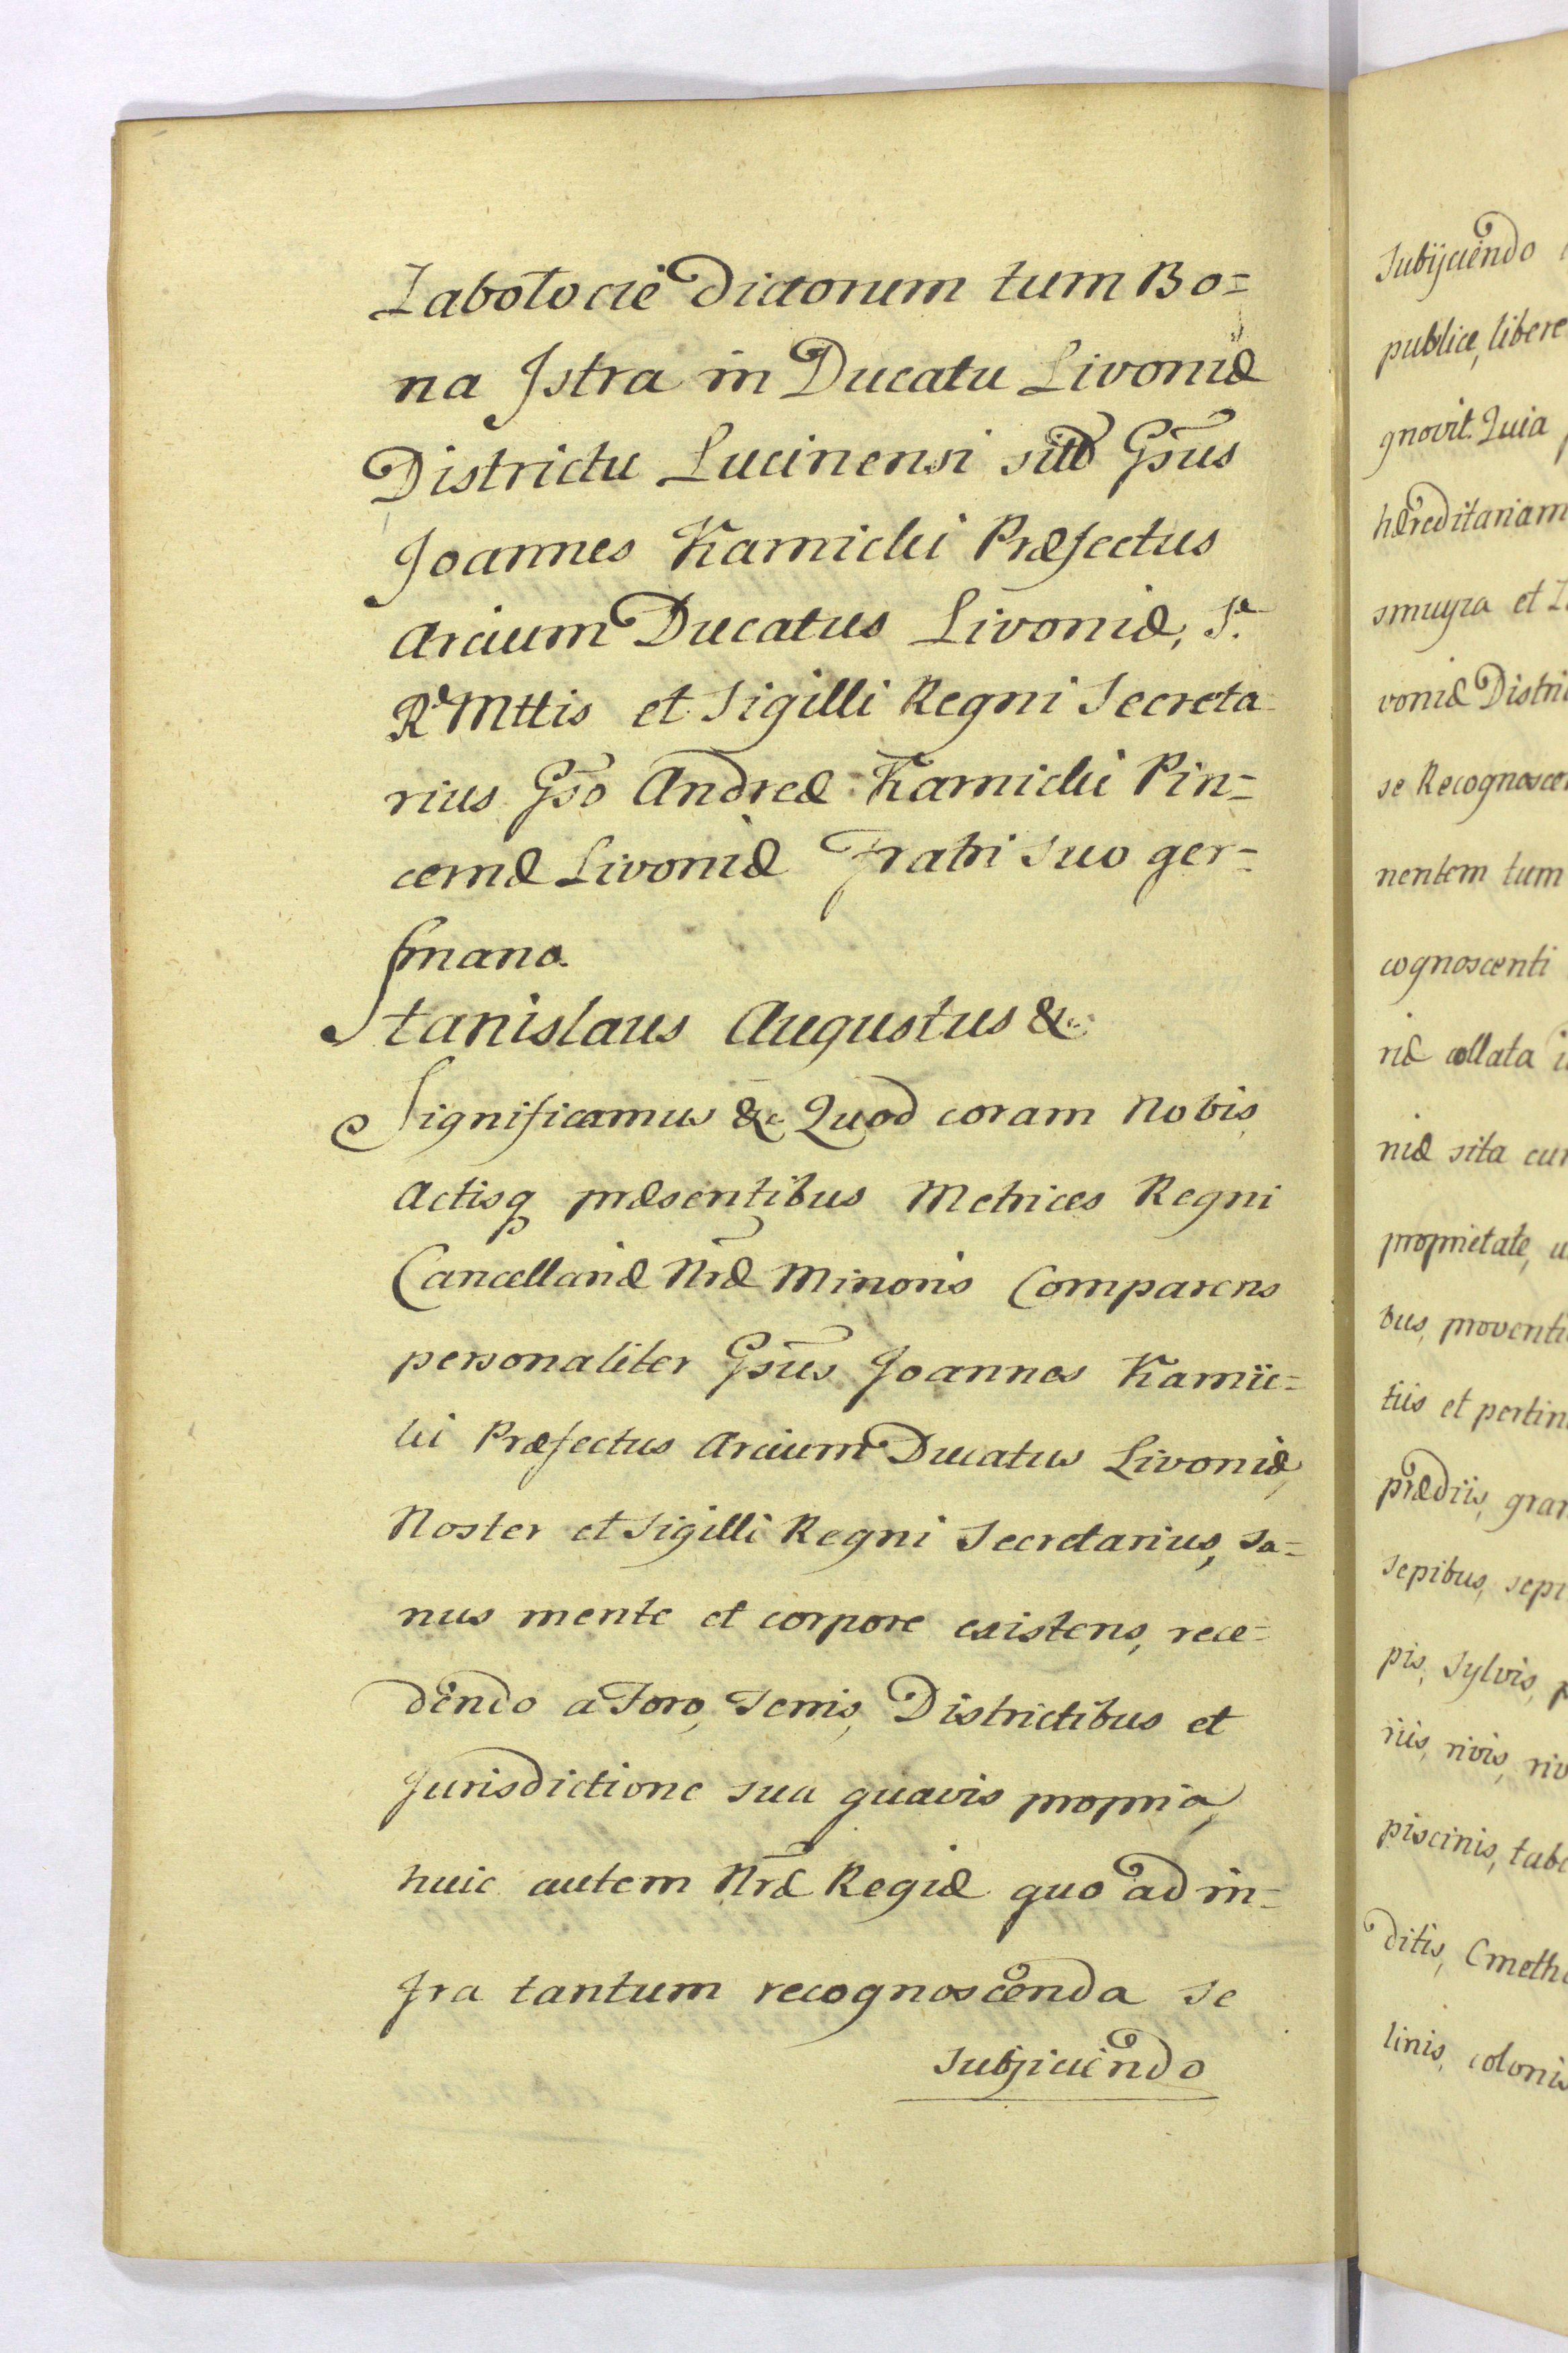 Zabołocie dictorum tum Bo=
na Istra in Ducatu Livoniæ
Districtu Lucinensi sita Gsus
Joannes Kamicki Præfectus
Arcium Ducatus Livoniæ, S.
R Mttis et Sigilli Regni Secreta
rius Gso Andreæ Kamicki Pin=
cernæ Livoniæ Fratri suo ger=
mano.
Stanislaus Augustus &c
Significamus &c Quod coram Nobis,
Actisq præsentibus Metrices Regni
Cancellariæ Nræ Minoris Comparens
personaliter Gsus Joannes Kamic=
ki Præfectus Arcium Ducatus Livoniæ,
Noster et Sigilli Regni Secretarius, sa=
nus mente et corpore existens, rece=
dendo a Foro, Terris, Districtibus et
Jurisdictione sua quavis propria,
huic autem Nræ Regiæ quo ad in=
fra tantum recognoscenda se
subjiciendo
Subijciendo
publice, libere
gnovit. Quia
hæreditariam
smuyza et
voniæ
se
nentem tum
cognoscenti
riæ collata
niæ sita
proprietate,
bus,
tiis et
prædiis,
sepibus,
pis, sylvis,
riis, rivis,
piscinis,
ditis,
linis,